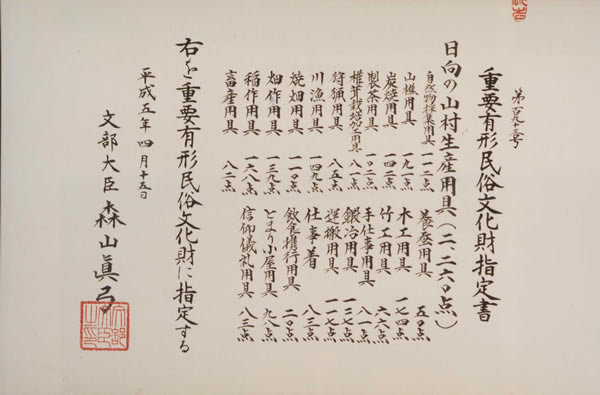 重要有形民俗文化財指定書
日向の山村生産用具(二、二六〇点)
自然物採集用具 一一二点
山樵用具 一九一点
炭焼用具 一四二点
製茶用具 一〇二点
椎茸栽培加工用具 八一点
狩猟用具 八五点
川漁用具 一四九点
焼畑用具 一一〇点
畑作用具 一三九点
稲作用具 一六八点
畜産用具 八二点
養蚕用具 五〇点
木工用具 一七四点
竹工用具 六六点
手仕事用具 八一点
鍛冶用具 一三七点
運搬用具 一一七点
仕事着 八三点
飲食携行用具 二〇点
とまり小屋用具 九八点
信仰儀礼用具 八三点
右を重要有形民俗文化財に指定する
平成五年四月十五日
文部大臣 森山眞弓